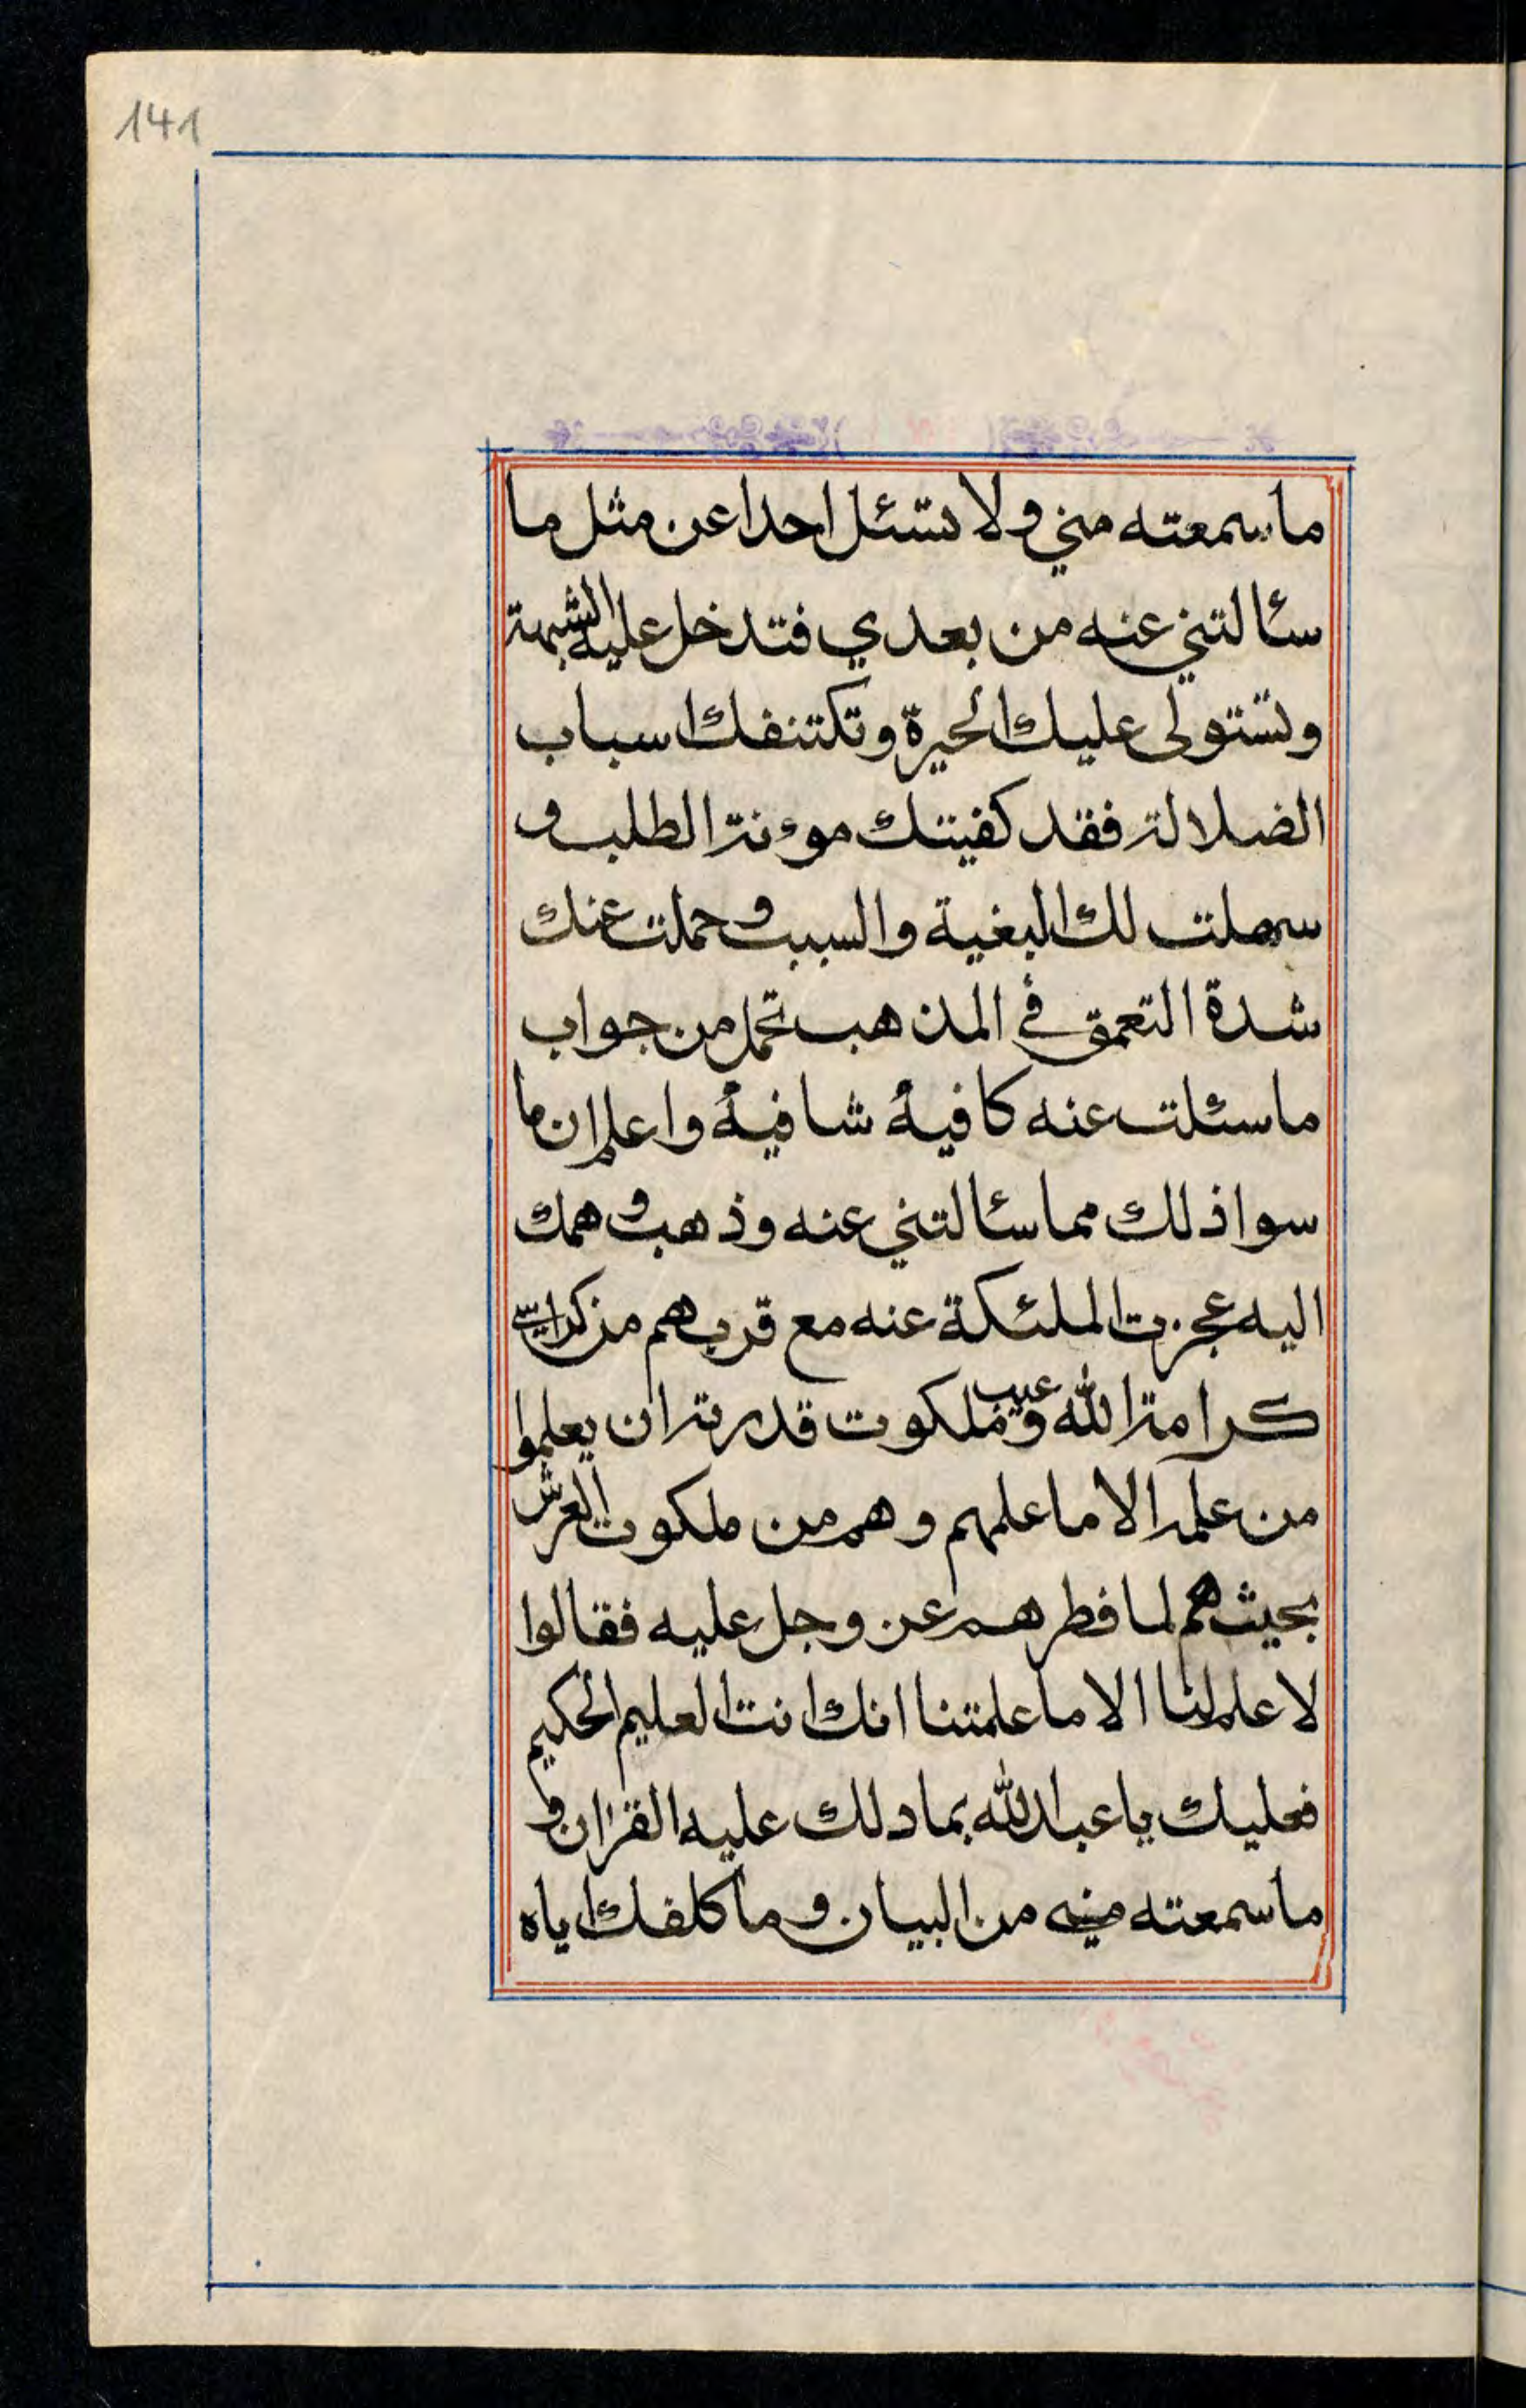 141
ما سمعته مني ولا تسئل احدا عن مثل ما
سئالتني عنه من بعدي فتدخل عليه الشبهة
وتستولى عليك الحيرة وتكتنفك اسباب
الضلالة فقد كفيتك موءنة الطلب و
سهلت لك البغية والسبب و حملت عنك
شدة التعمق في المذهب تحمل من جواب
ما سئلت عنه كافية شافية واعلم ان ما
سوا ذلك مما سئالتني عنه وذهب و همك
اليه عجزت الملئكة عنه مع قربهم من
كرامة الله و غيب ملكوت قدرته ان يعلموا
من علمه الا ما علمهم وهم من ملكوت العرش
بحيث هم لما فطرهم عز وجل عليه فقالوا
لا علم لنا الا ما علمتنا انك انت العليم الحكيم
فعليك يا عبد الله بما دلك عليه القران و
ما سمعته مني من البيان و ما كلفك اياه